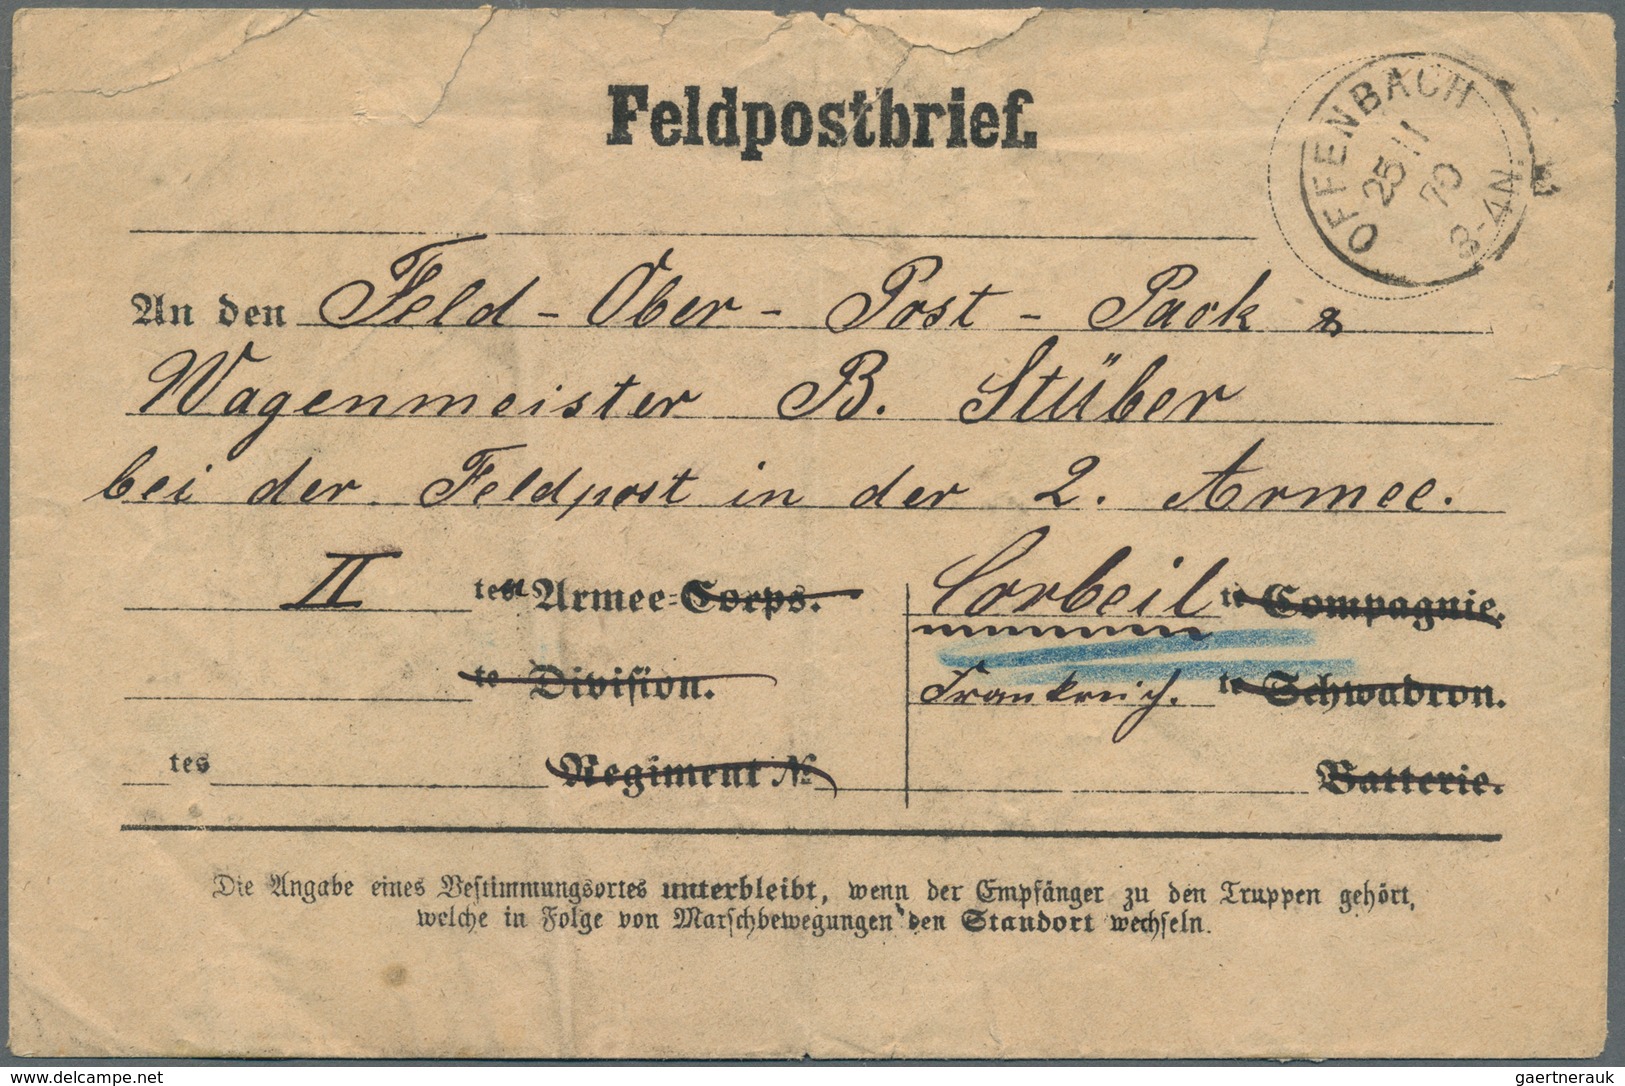 Feldpostbrief.
OFFENBACH
25 11
70
3-4N.
An den Feld-Ober-Post-Pack &
Wagenmeister B. Stüber
bei der Feldpost in der 2. Armee.
II tes Armee-Corps. Corbeil te Compagnie.
te Division. Frankreich. te Schwadron.
tes Regiment No Batterie.
Die Angabe eines Bestimmungsortes unterbleibt, wenn der Empfänger zu den Truppen gehört,
welche in Folge von Marschbewegungen den Standort wechseln.
www.delcampe.net
gaertnerauk